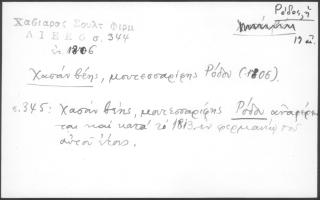 Ρόδος, ἡ
Χασιαρος Σουλτ Φιρμ
Λ Ι Ε Ε Θ σ. 344
ἐν 1806
19 αἰ.
Χασάν βέης, μουτεσσαρίφης Ρόδου (1806).
σ. 345: Χασάν βέης, μουτεσσαρίφης Ρόδου ἀναφέρε
ται καί κατά τό 1813 ἐν φερμανίῳ τοῦ
αὐτοῦ ἔτους.